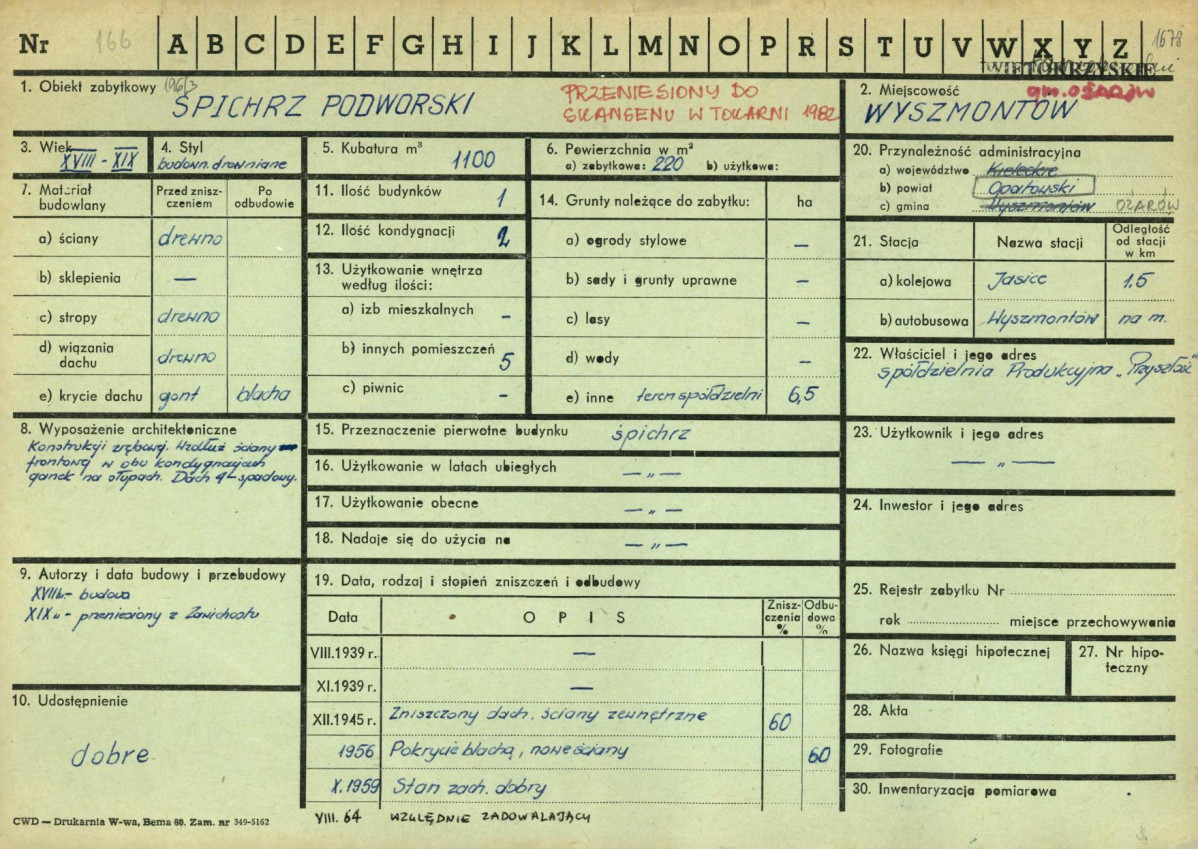 Nr 166 A B C D E F G H I J K L M N O P R S T U V W X Y Z 1678
1. Obiekt zabytkowy
SPICHRZ PODWORSKI
PRZENIESIONY DO
SKANSENU W TOKARNI 1982
2. Miejscowość gm. OŻARÓW
WYSZMONTÓW
3. Wiek
XVIII - XIX
4. Styl
budown. drewniane
5. Kubatura m³
1100
6. Powierzchnia w m²
a) zabytkowa: 220 b) użytkowa:
20. Przynależność administracyjna
a) województwo Kieleckie
b) powiat Opatowski
c) gmina Wyszmontów OŻARÓW
7. Materiał budowlany
Przed zniszczeniem
Po odbudowie
a) ściany drewno
b) sklepienia —
c) stropy drewno
d) wiązania dachu drewno
e) krycie dachu gont blacha
11. Ilość budynków 1
12. Ilość kondygnacji 2
13. Użytkowanie wnętrza
według ilości:
a) izb mieszkalnych -
b) innych pomieszczeń 5
c) piwnic -
14. Grunty należące do zabytku: ha
a) ogrody stylowe —
b) sady i grunty uprawne —
c) lasy —
d) wody —
e) inne teren spółdzielni 6,5
21. Stacja Nazwa stacji Odległość od stacji w km
a) kolejowa Jasice 1.5
b) autobusowa Wyszmontów na m.
22. Właściciel i jego adres
spółdzielnia Produkcyjna „Przyszłość"
8. Wyposażenie architektoniczne
Konstrukcji zrębowej. Wzdłuż ściany
frontowej w obu kondygnacjach
ganek na słupach. Dach 4-spadowy.
15. Przeznaczenie pierwotne budynku śpichrz
16. Użytkowanie w latach ubiegłych — „ —
17. Użytkowanie obecne — „ —
18. Nadaje się do użycia na — „ —
23. Użytkownik i jego adres
— „ —
24. Inwestor i jego adres
9. Autorzy i data budowy i przebudowy
XVIIIw.- budowa
XIX w - przeniesiony z Zawichostu
19. Data, rodzaj i stopień zniszczeń i odbudowy
Data OPIS Zniszczenia % Odbudowa %
VIII.1939 r. —
XI.1939 r. —
XII.1945 r. Zniszczony dach. ściany zewnętrzne 60
1956 Pokrycie blachą, nowe ściany 60
X.1959 Stan zach. dobry
VIII. 64 WZGLĘDNIE ZADOWALAJĄCY
25. Rejestr zabytku Nr
rok miejsce przechowywania
26. Nazwa księgi hipotecznej
27. Nr hipoteczny
28. Akta
29. Fotografie
30. Inwentaryzacja pomiarowa
10. Udostępnienie
dobre
CWD — Drukarnia W-wa, Bema 60. Zam. nr 349-5162